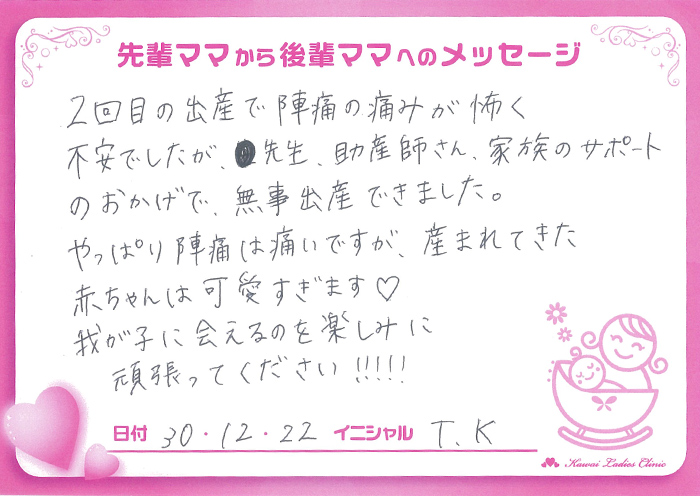 先輩ママから後輩ママへのメッセージ
2回目の出産で陣痛の痛みが怖く
不安でしたが、先生、助産師さん、家族のサポート
のおかげで、無事出産できました。
やっぱり陣痛は痛いですが、産まれてきた
赤ちゃんは可愛すぎます♡
我が子に会えるのを楽しみに
頑張ってください!!!!!
日付 30・12・22 イニシャル T.K
Kawai Ladies Clinic